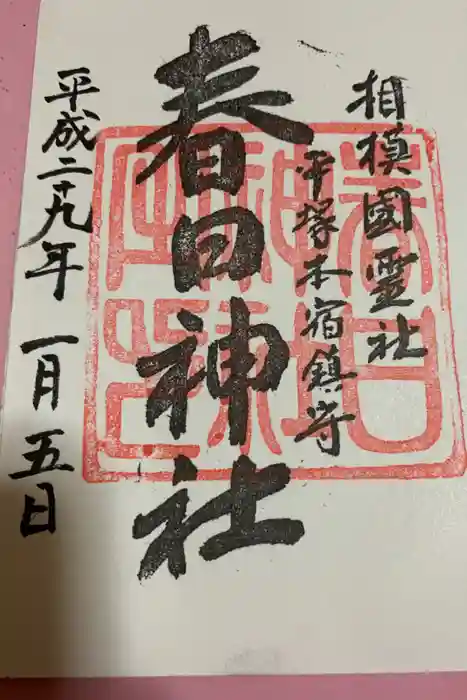 相模國霊社
平塚本宿鎮守
春日神社
平成二十九年 一月五日